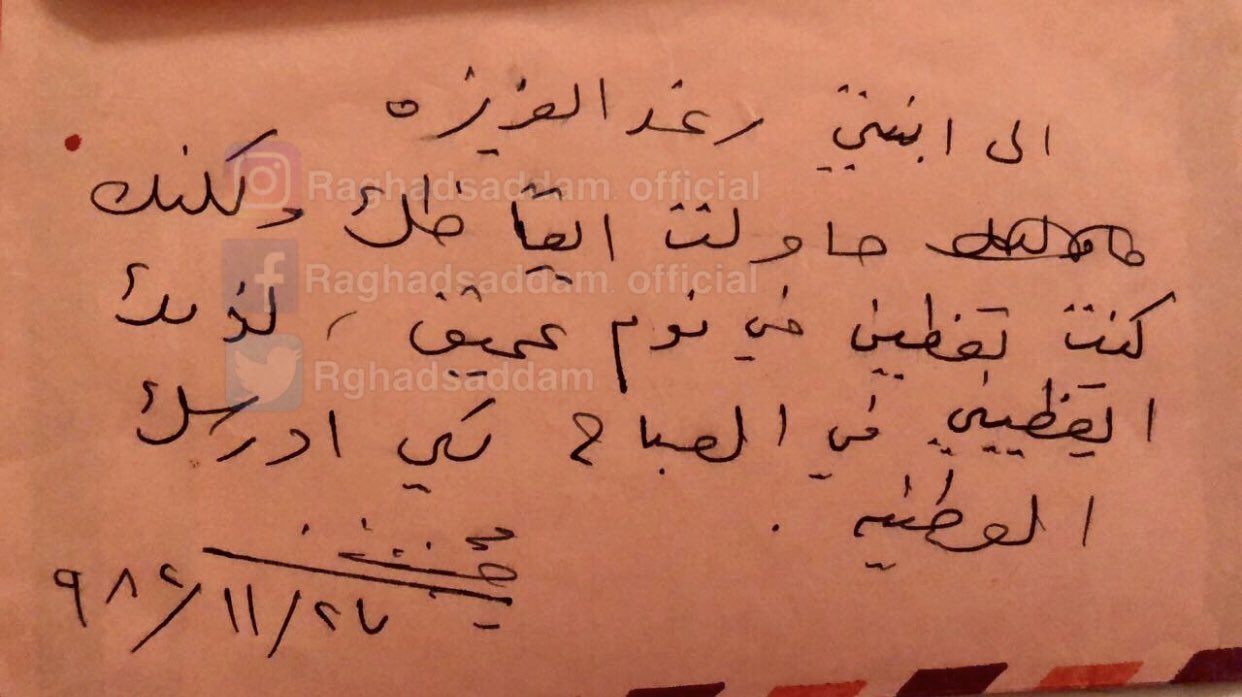 الى ابنتي رغد العزيزه
حاولت ايقاظك ولكنك
كنت تغطين في نوم عميق ، لذلك
ايقظيني في الصباح لكي ادرسك
الوطنيه .
٩٨٤/١١/٢٧
Raghadsaddam. official
Raghadsaddam. official
Rghadsaddam